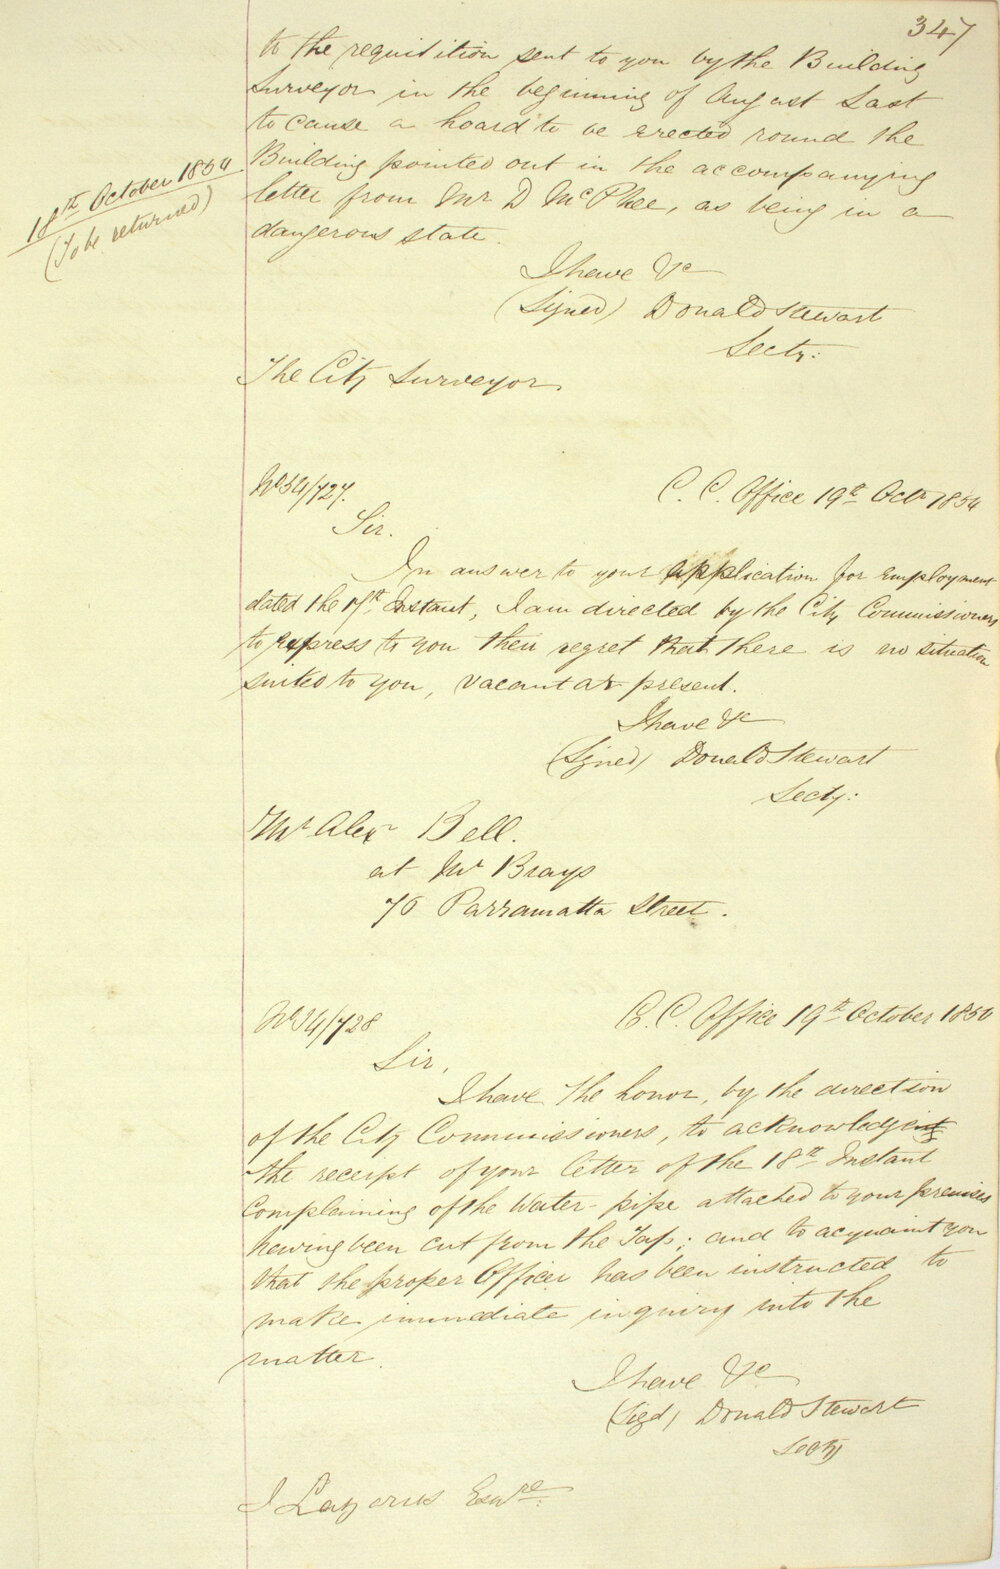 347
to the requisition sent to you by the Building
Surveyor in the beginning of August last
to cause a hoard to be erected round the
Building pointed out in the accompanying
letter from Mr D McPhee, as being in a
dangerous state.
18th October 1854
(To be returned)
I have &c
(Signed) Donald Stewart
Secty:
The City Surveyor
No 54/727.
C. C. Office 19th Octr 1854
Sir.
In answer to your application for employment
dated the 17th Instant, I am directed by the City Commissioners
to express to you their regret that there is no situation
suited to you, vacant at present.
I have &c
(Signed) Donald Stewart
Secty:
Mr Alexr Bell.
at Mr Brays
76 Parramatta Street.
No 54/728
C. C. Office 19th October 1854
Sir,
I have the honor, by the direction
of the City Commissioners, to acknowledge
the receipt of your letter of the 18th Instant
Complaining of the Water-pipe attached to your premises
having been cut from the Tap; and to acquaint you
that the proper Officer has been instructed to
make immediate inquiry into the
matter.
I have &c
(Sigd) Donald Stewart
Secty
J Lazarus Esqre: